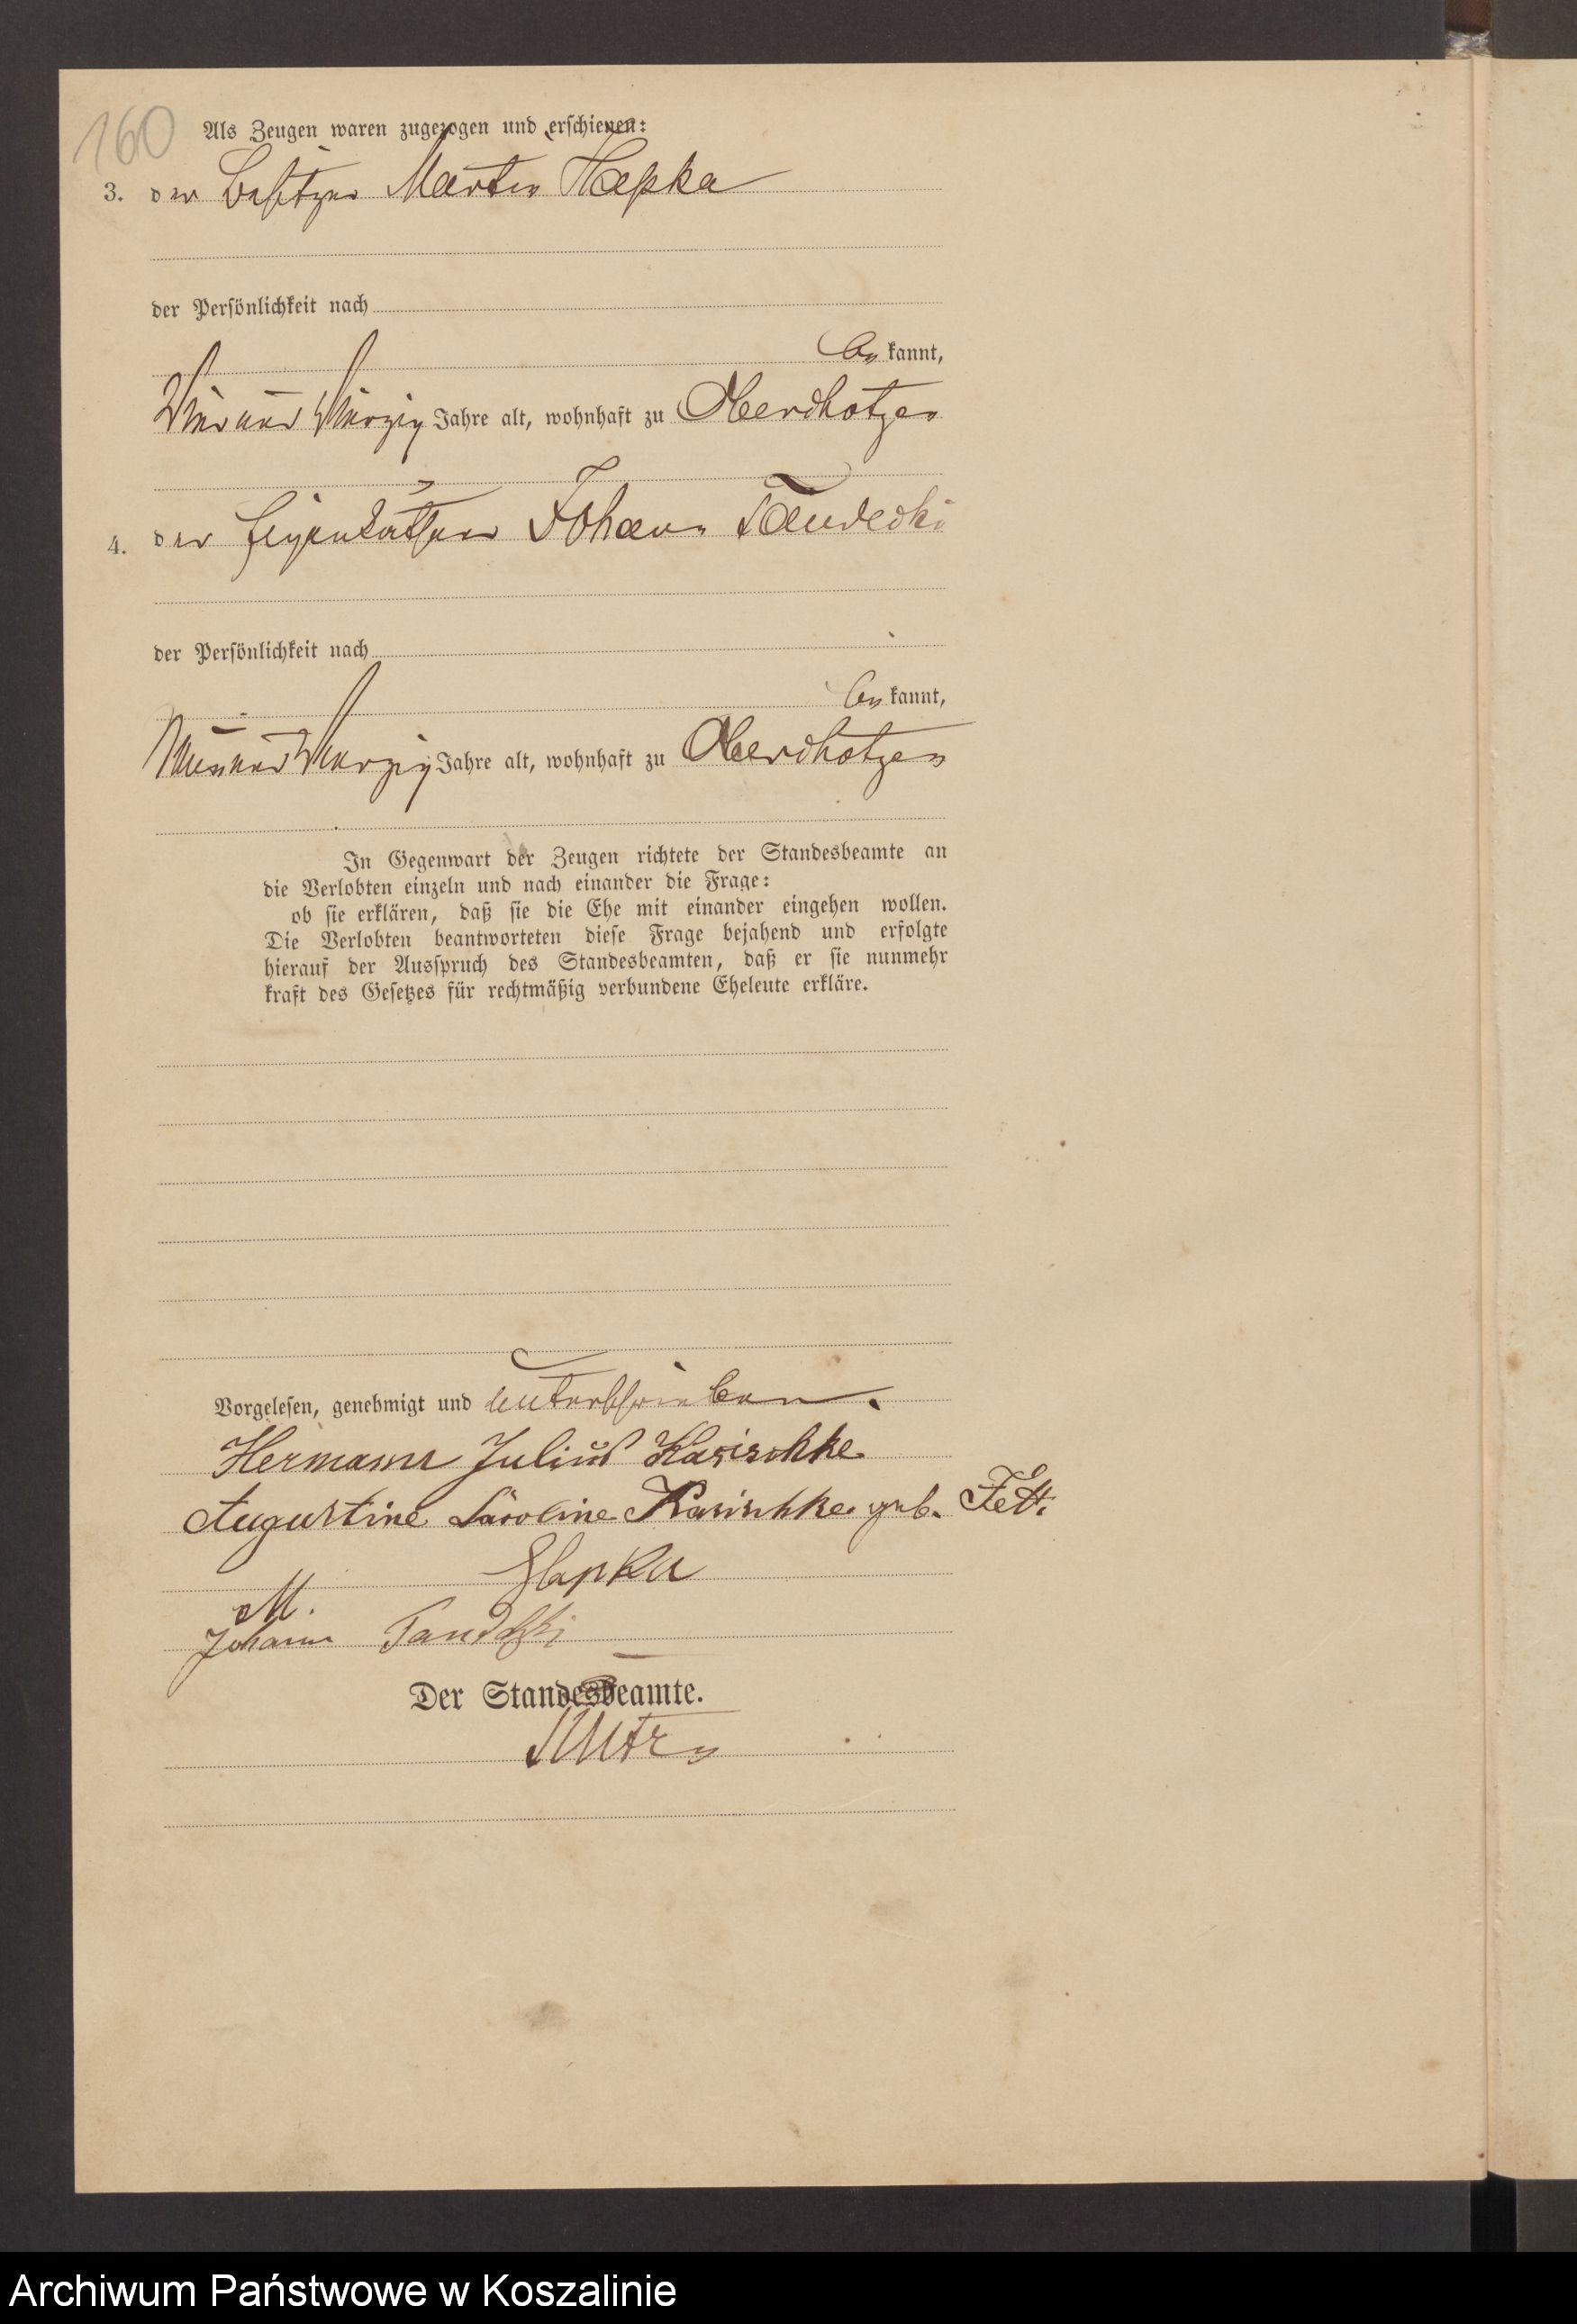 160
Als Zeugen waren zugezogen und erschienen:
3. der Besitzer Martin Hapka
der Persönlichkeit nach
be kannt,
Vier und vierzig Jahre alt, wohnhaft zu
4. der Eigenkäthner Johann
der Persönlichkeit nach
be kannt,
Neun und vierzig Jahre alt, wohnhaft zu
In Gegenwart der Zeugen richtete der Standesbeamte an
die Verlobten einzeln und nach einander die Frage:
ob sie erklären, daß sie die Ehe mit einander eingehen wollen.
Die Verlobten beantworteten diese Frage bejahend und erfolgte
hierauf der Ausspruch des Standesbeamten, daß er sie nunmehr
kraft des Gesetzes für rechtmäßig verbundene Eheleute erkläre.
Vorgelesen, genehmigt und unterschrieben.
Hermann Julius Karischke
Augustine Karoline Karischke geb. Fett.
M. Hapka
Johann
Der Standesbeamte.
Archiwum Państwowe w Koszalinie